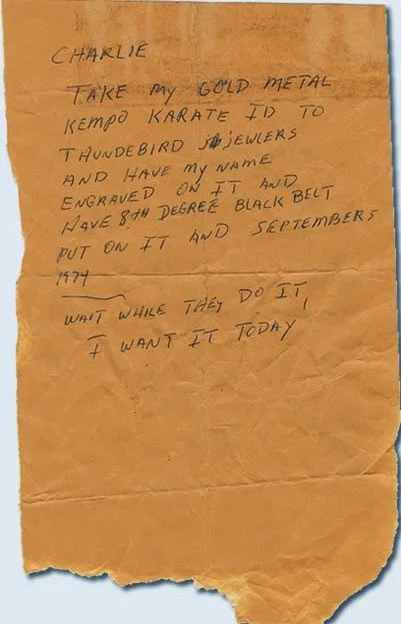 CHARLIE
TAKE MY GOLD METAL
KEMPO KARATE ID TO
THUNDEBIRD JEWLERS
AND HAVE MY NAME
ENGRAVED ON IT AND
HAVE 8TH DEGREE BLACK BELT
PUT ON IT AND SEPTEMBERS
1974
WAIT WHILE THEY DO IT,
I WANT IT TODAY